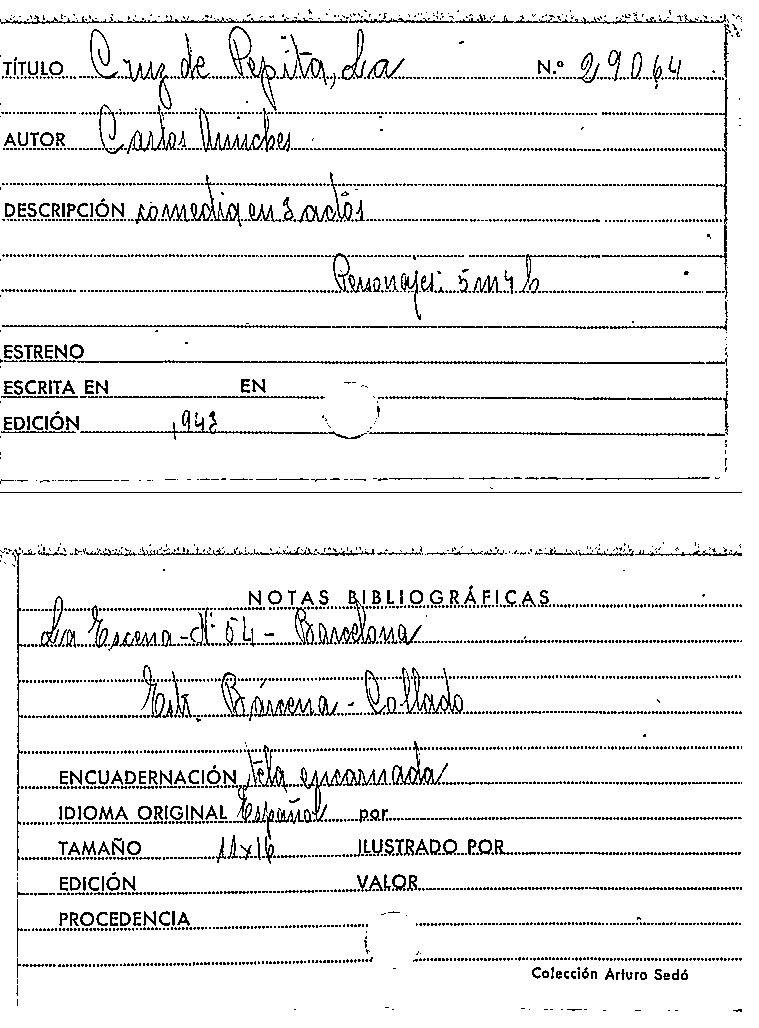 TÍTULO Cruz de Pepita, La N.º 29064
AUTOR Carlos Arniches
DESCRIPCIÓN comedia en 3 actos
Personajes: 5 m 4 h
ESTRENO
ESCRITA EN EN
EDICIÓN 1943
NOTAS BIBLIOGRÁFICAS
La Escena - Nº 54 - Barcelona
Estr. Bárcena - Collado
ENCUADERNACIÓN tela encarnada
IDIOMA ORIGINAL Español por
TAMAÑO 11x16 ILUSTRADO POR
EDICIÓN VALOR
PROCEDENCIA
Colección Arturo Sedó